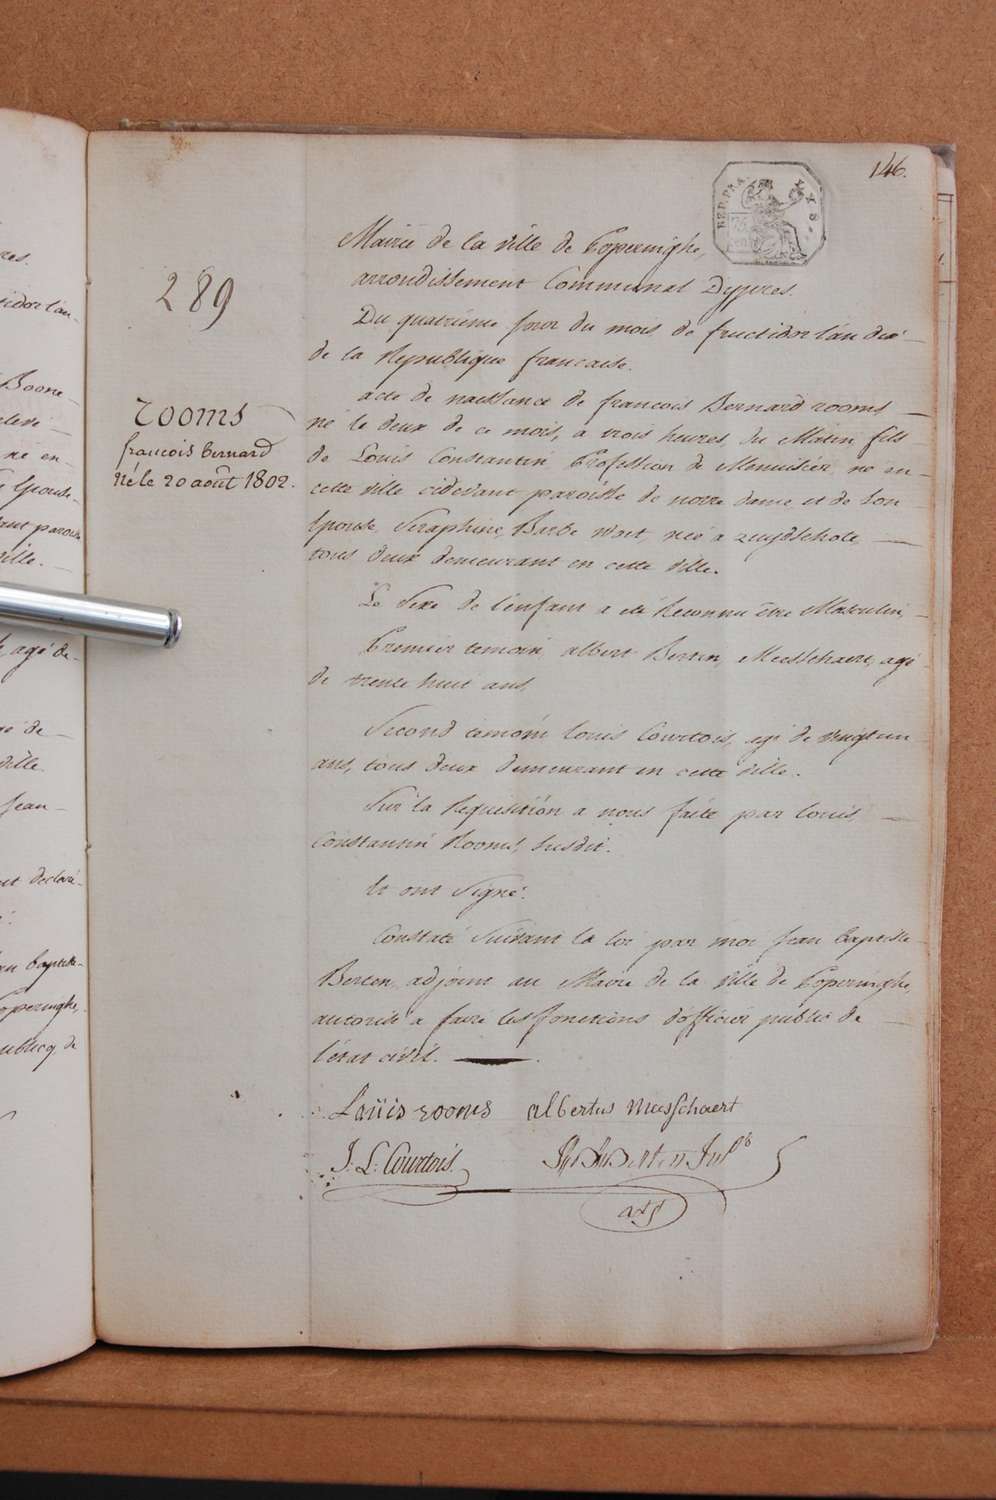 146.
REP. FRA.
289
Mairie de la ville de Poperinghe,
arrondissement Communal Dypres.
Du quatrieme jour du mois de fructidor l'an dix
de la Republique francaise.
rooms
francois bernard
Né le 20 août 1802.
acte de naissance de francois Bernard rooms
né le deux de ce mois, a trois heures du Matin fils
de Louis Constantin, Profession de Menuisier, né en
cette ville cidevant paroisse de notre dame, et de Son
Epouse Seraphine, Barbe née a zuydschote
tous deux demeurant en cette ville.
Le Sexe de l'enfant a eté Reconnu être Masculin,
Premier temoin albert Bertin, Meesschaert, agé
de trente huit ans,
Second temoin Louis Courtois, agé de vingt un
ans, tous deux demeurant en cette ville.
Sur la Requisition a nous faite par Louis,
Constantin Rooms, susdit.
Et ont Signé.
Constaté Suivant la loi par moi Jean baptiste
Berten, adjoint au Maire de la ville de Poperinghe,
autorisé a faire les fonctions d'officier public de
l'état civil.
Laüis rooms albertus Meesschaert
J. L. Courtois.
adj